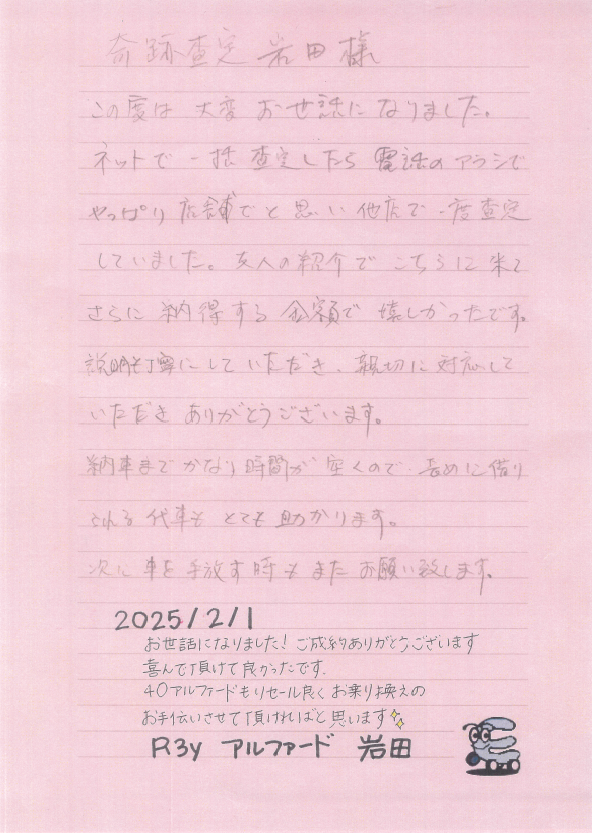 奇跡査定 岩田様
この度は 大変 お世話になりました。
ネットで 一括 査定したら 電話のアラシで
やっぱり 店舗でと思い 他店で 一度査定
していました。友人の紹介で こちらに 来て
さらに 納得する 金額で 嬉しかったです。
説明も丁寧にしていただき、親切に対応して
いただき ありがとうございます。
納車まで かなり 時間が 空くので、長めに借り
られる 代車も とても 助かります。
次に 車を 手放す 時も また お願い致します。
2025/2/1
お世話になりました! ご成約ありがとうございます
喜んで頂けて良かったです.
40アルファードもリセール良く お乗り換えの
お手伝いさせて頂ければと思います
R3y アルファード 岩田